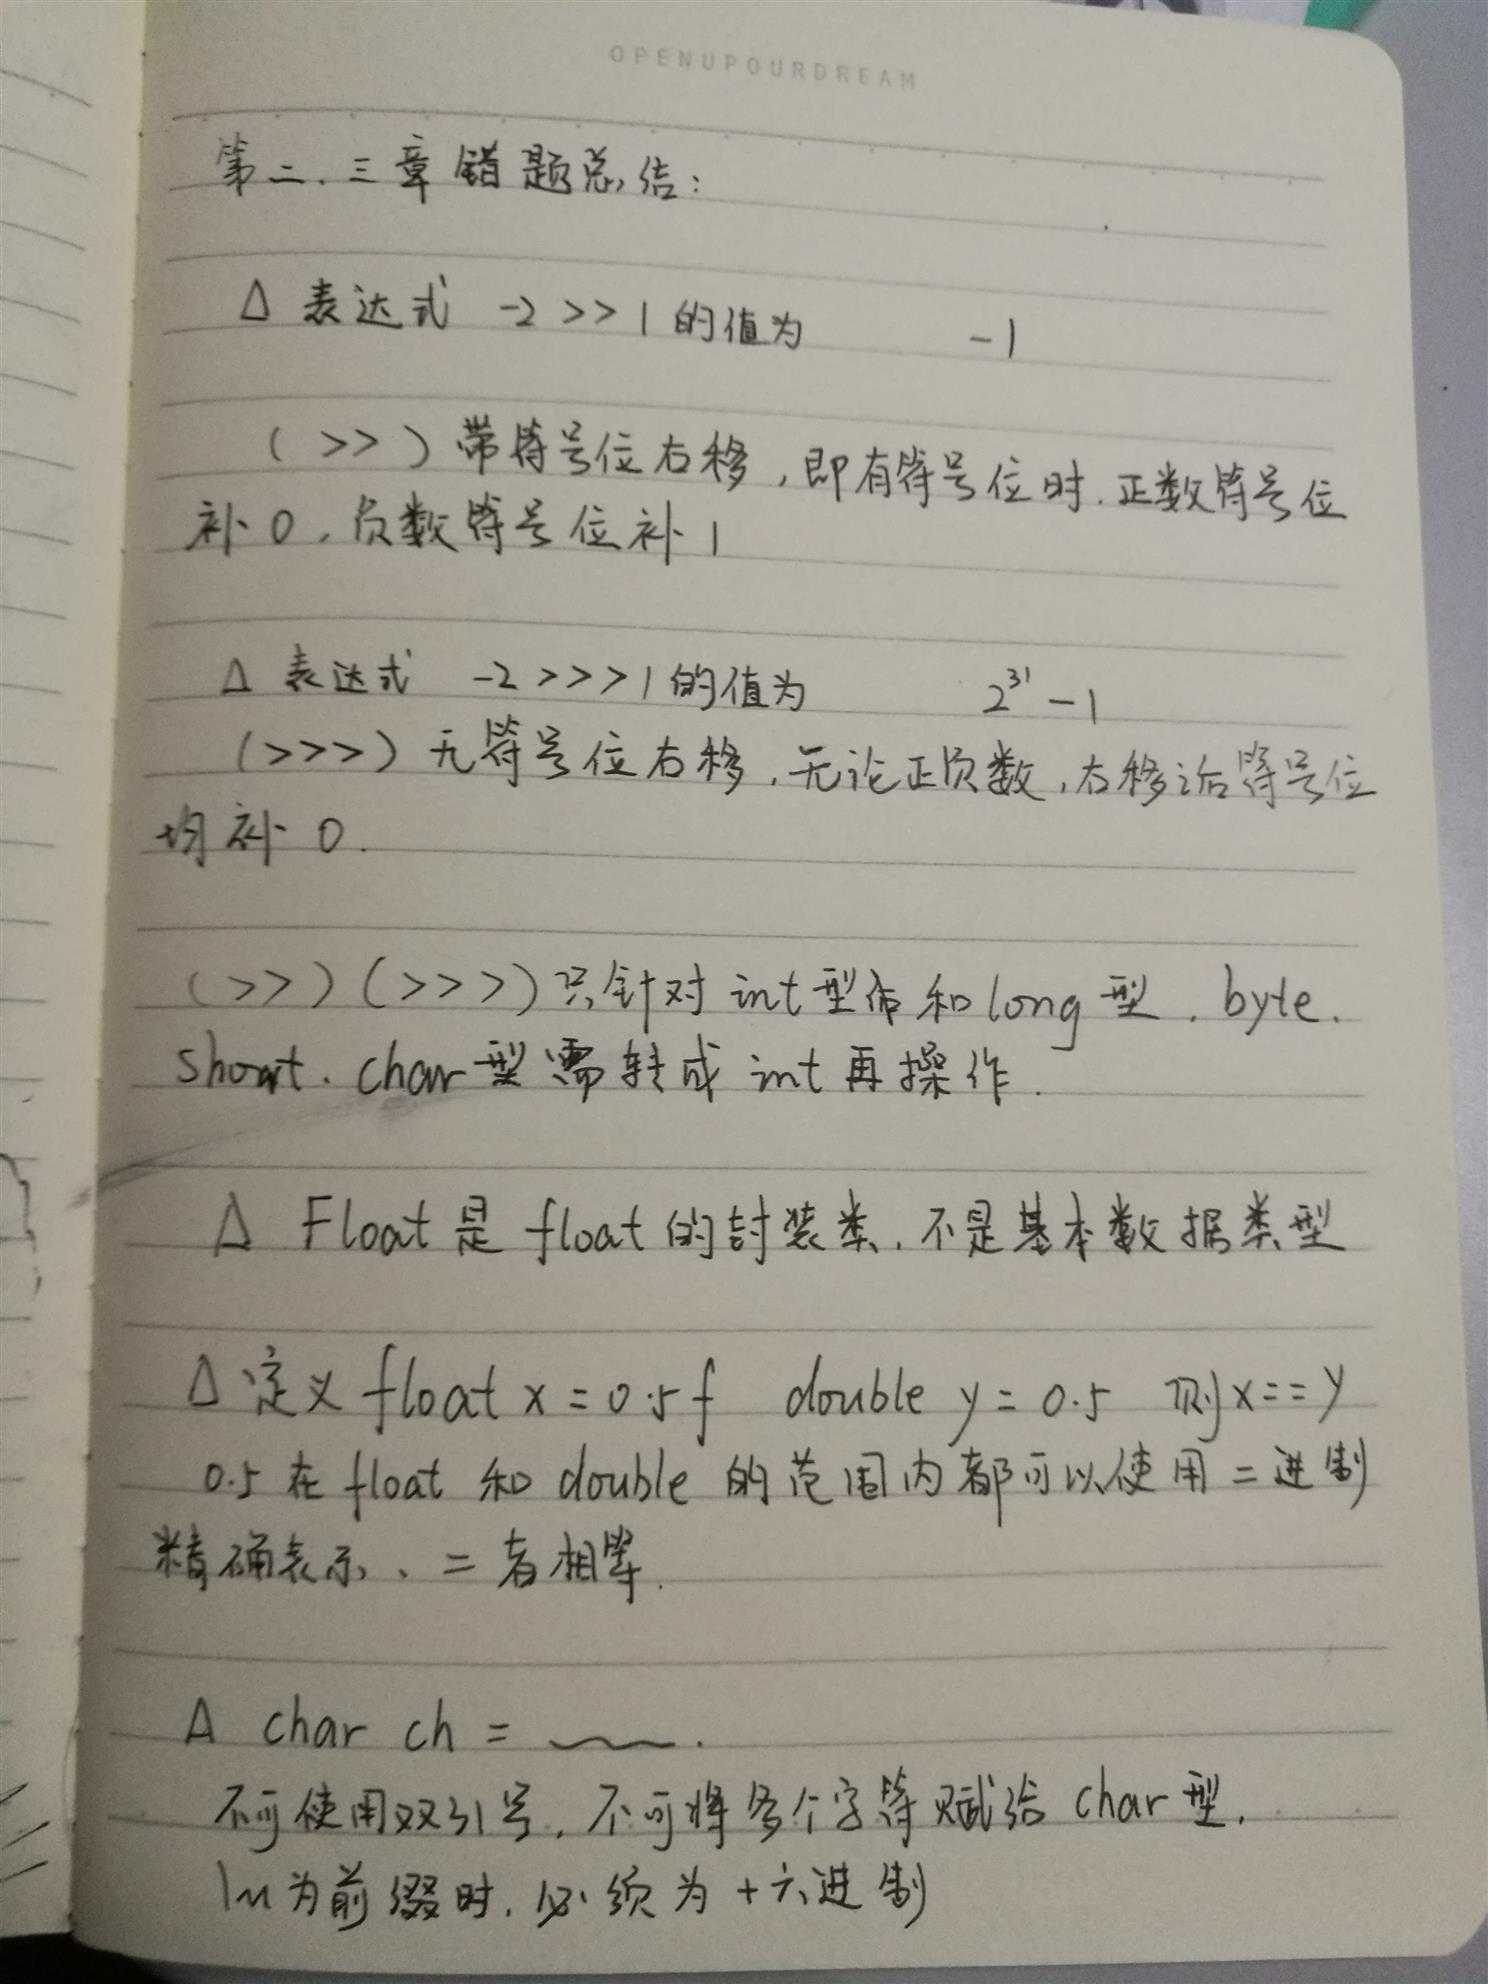 OPENUPOURDREAM
第二、三章错题总结：
Δ 表达式 -2>>1的值为 -1
(>>)带符号位右移，即有符号位时，正数符号位
补0，负数符号位补1
Δ 表达式 -2>>>1的值为 2³¹-1
(>>>)无符号位右移，无论正负数，右移后符号位
均补0.
(>>)(>>>)只针对int型和long型，byte、
short、char型需转成int再操作.
Δ Float是float的封装类，不是基本数据类型
Δ 定义float x=0.5f double y=0.5 则x==y
0.5在float和double的范围内都可以使用二进制
精确表示、二者相等.
Δ char ch = .
不可使用双引号，不可将多个字符赋给char型，
\u为前缀时，必须为十六进制